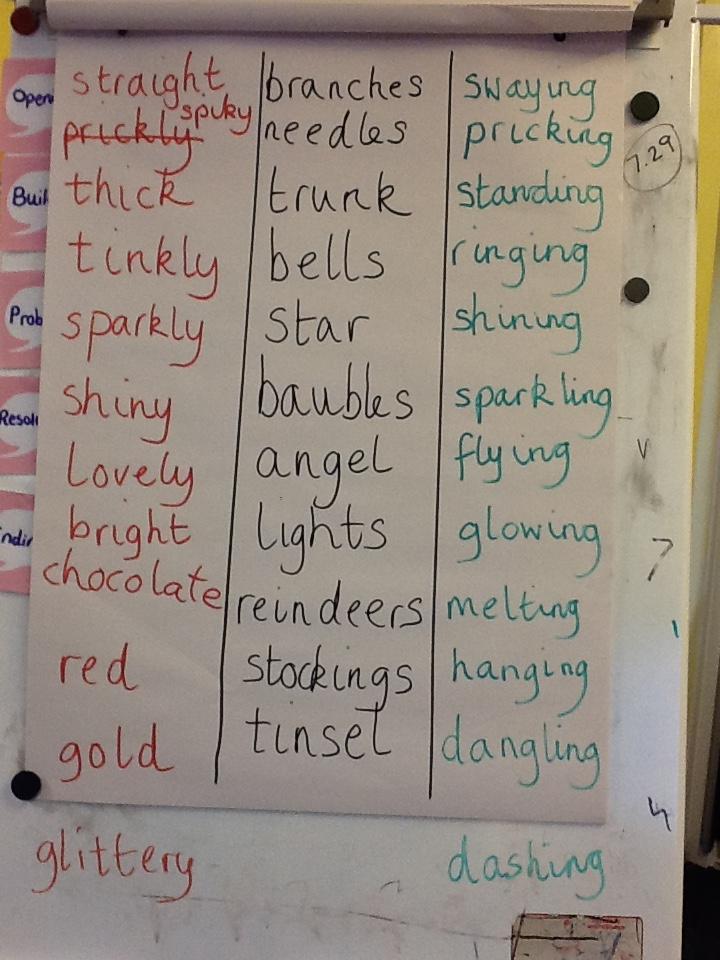 straight branches swaying
Open
prickly spiky needles pricking
7.29
thick trunk standing
tinkly bells ringing
sparkly star shining
Prob
shiny baubles sparkling
lovely angel flying
bright lights glowing
7
chocolate reindeers melting
red stockings hanging
gold tinsel dangling
4
glittery dashing